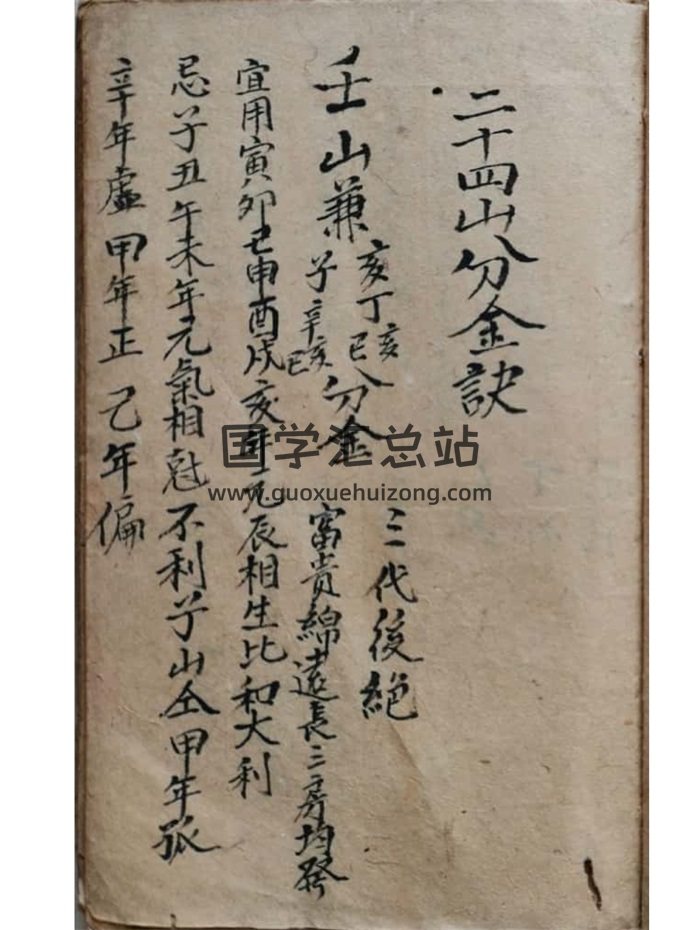 二十四山分金訣
壬山兼亥丁亥巳亥分金 三代後絕
子辛亥巳 富貴綿遠長三房均發
宜用寅卯巳申酉戌亥年元辰相生比和大利
忌子丑午未年元氣相尅不利子山仝甲年孤
辛年虛甲年正己年偏
国学汇总站
www.guoxuehuizong.com